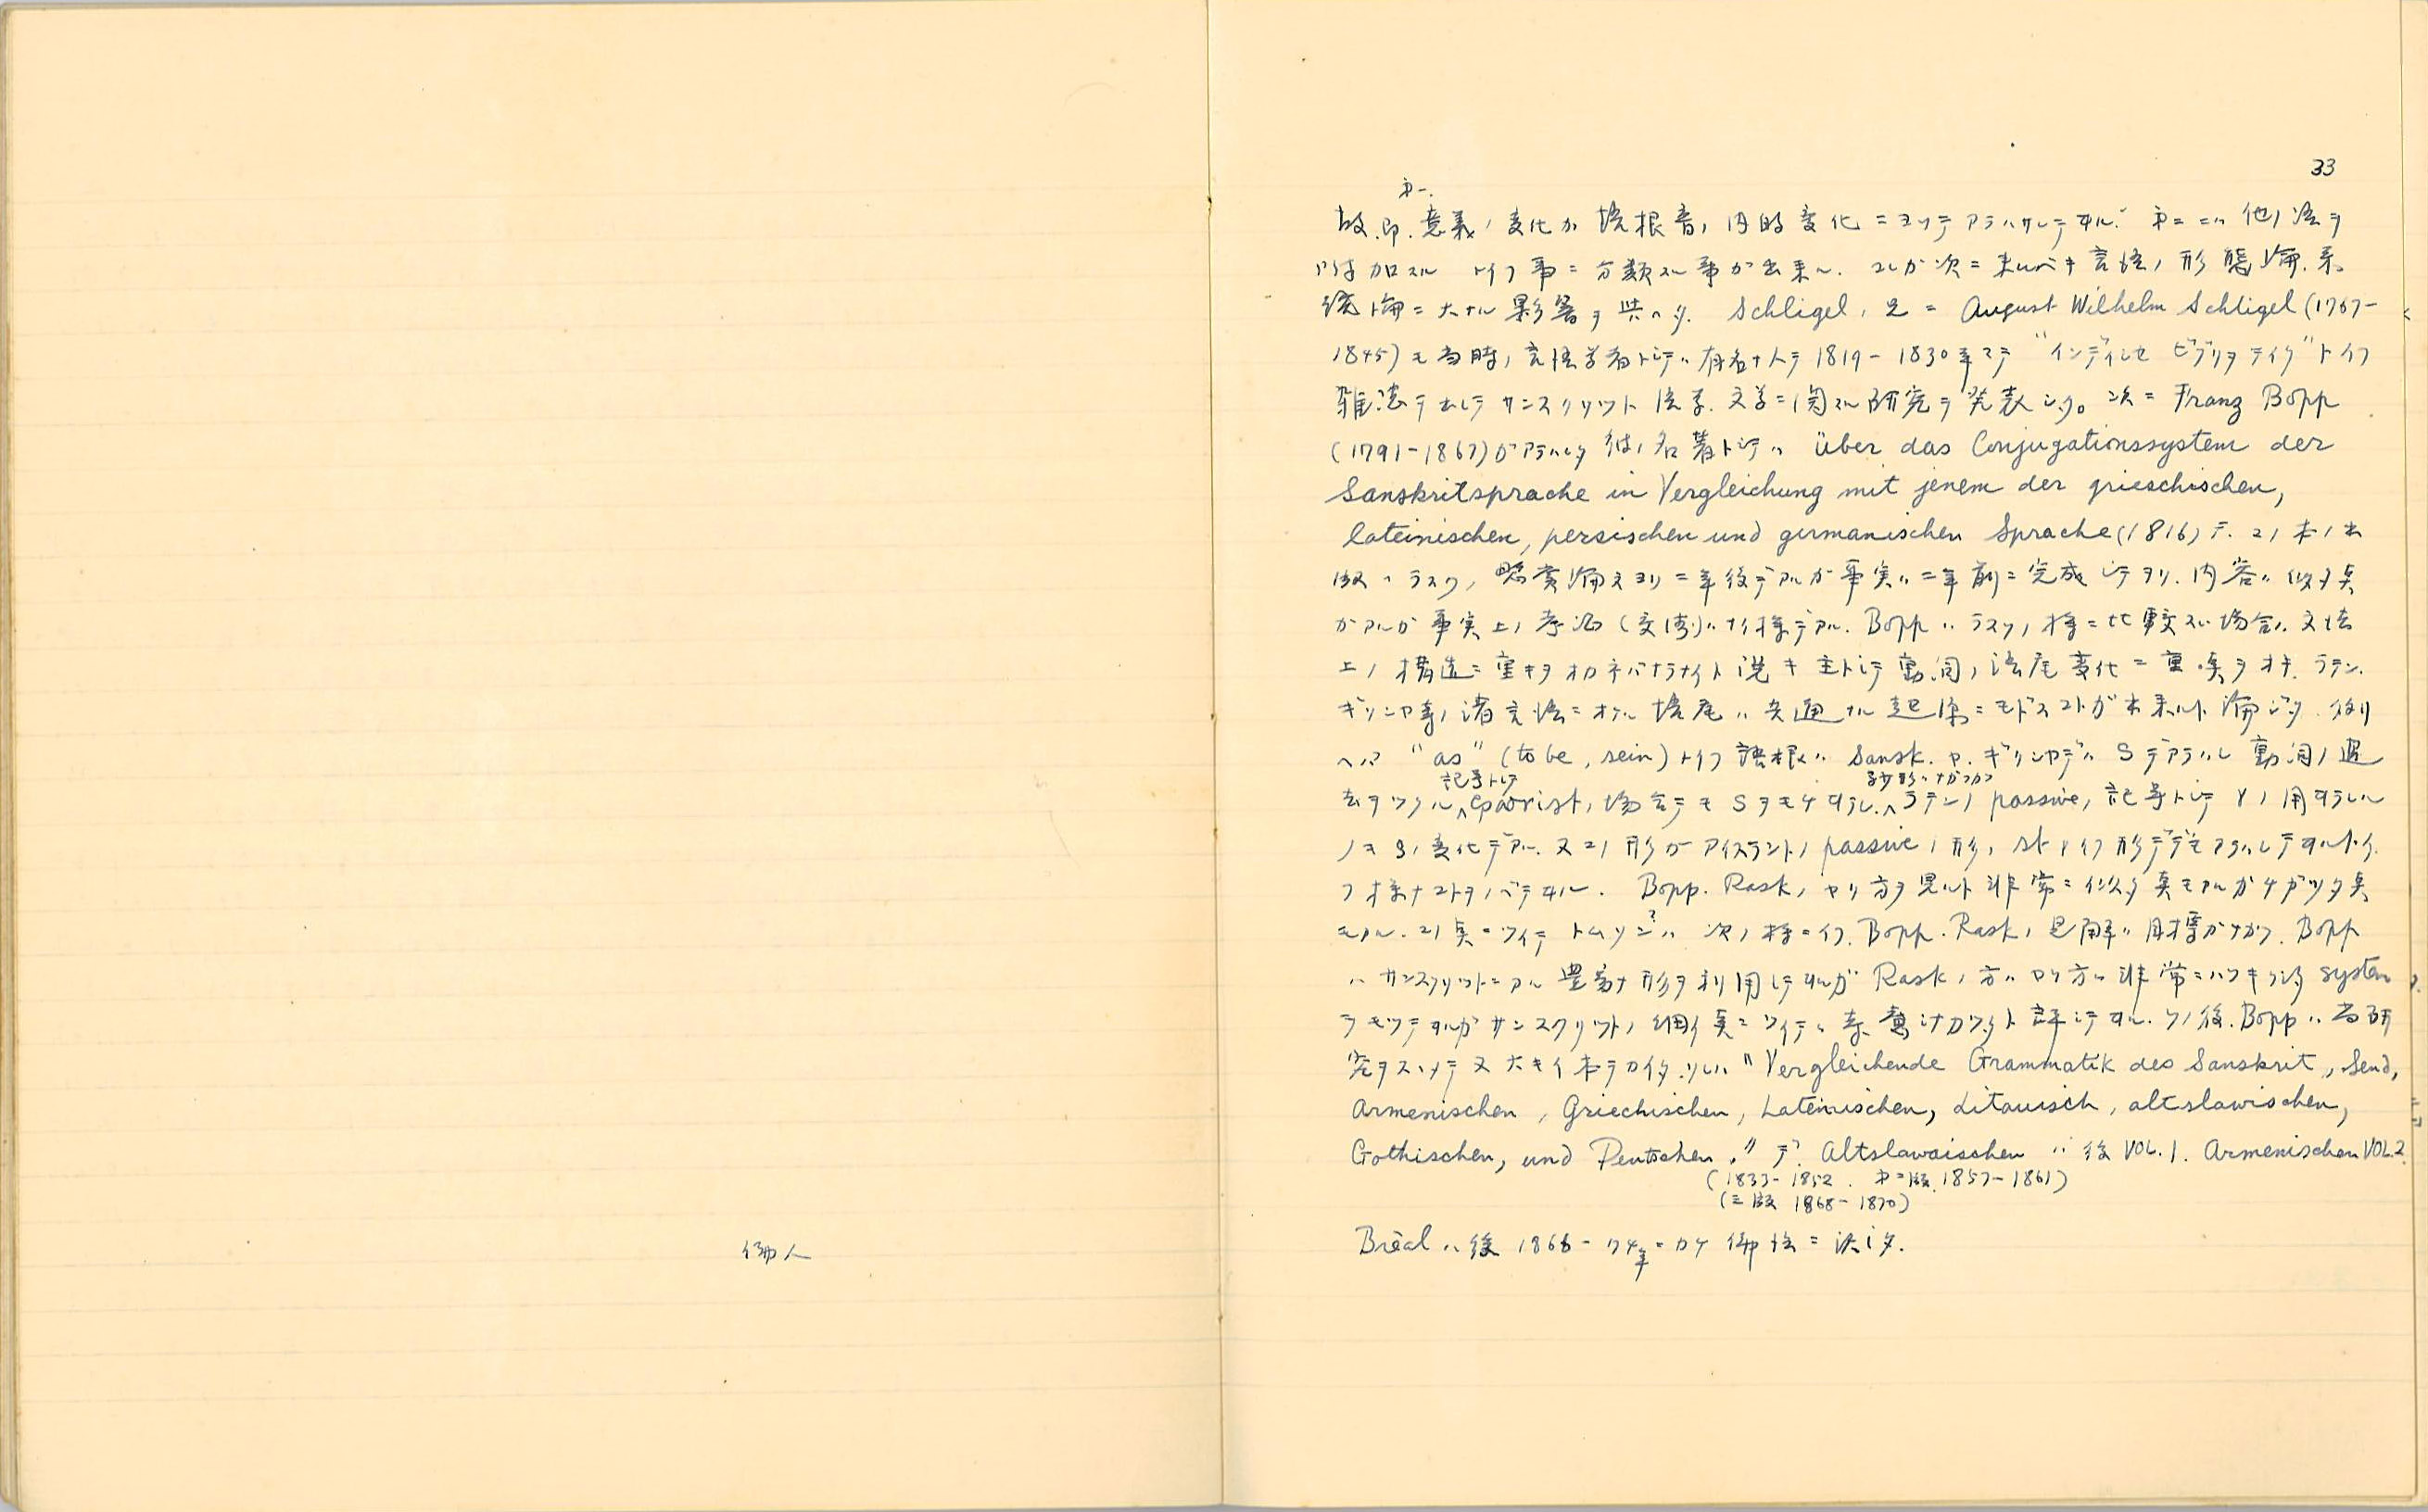 仏人
33
第一.
故.即.意義ノ変化ガ語根音ノ内的変化ニヨツテアラハサレテヰル. 第二ニハ他ノ語ヲ
附加スル トイフ事ニ分類スル事ガ出来ル. コレガ次ニ来ルベキ言語ノ形態論.系
統論ニ大ナル影響ヲ与ヘタ. Schligel, 兄ニ August Wilhelm Schligel (1767-
1845) モ当時ノ言語学者トシテハ有名ナ人デ 1819-1830年マデ "インディシセ ビブリヲテイク" トイフ
雑誌ヲ出シテサンスクリツト語学.文学ニ関スル研究ヲ発表シタ。次ニ Franz Bopp
(1791-1867)ガアラハレタ 彼ノ名著トシテハ Über das Conjugationssystem der
Sanskritsprache in Vergleichung mit jenem der grieschischen,
lateinischen, persischen und germanischen Sprache (1816) デ. コノ本ノ出
版ハラスクノ懸賞論文ヨリ二年後デアルガ事実ハ二年前ニ完成シテヲリ.内容ハ似タ点
ガアルガ事実上ノ (交渉)ハナイ様デアル. Bopp ハラスクノ様ニ比較スル場合ハ文法
上ノ構造ニ重キヲオカネバナラナイト説キ主トシテ動詞ノ語尾変化ニ重点ヲオキ. ラテン.
ギリシヤ等ノ諸言語ニオケル語尾ハ共通ナル起原ニモドスコトガ出来ルト論ジタ. 例
ヘバ "as" (to be, sein) トイフ語根ハ Sansk. ヤ. ギリシヤデハ S デアラハレ動詞ノ過
記号トシテ 少形ハナガフガ
去ヲツクル aorist, 場合デモ S ヲモチヰラレ. ラテンノ passive, 記号トシテ r ノ用ヰラレル
ノモ S, 変化デアル. 又コノ形ガアイスランドノ passive ノ形, st トイフ形デデモアラハレテヰルトイ
フ様ナコトヲノベテヰル. Bopp. Rask, ヤリ方ヲ見ルト非常ニ似タ点モアルガチガツタ点
モアル. コノ点ニツイテ トムソン?ハ 次ノ様ニイフ. Bopp. Rask, 見解ハ目標ガチガフ. Bopp
ハサンスクリツトニアル豊富ナ形ヲ利用シテヰルガ Rask, 方ハヤリ方ハ非常ニハツキリシタ system
ヲモツテヰルガサンスクリツトノ細イ点ニツイテハ 考慮シナカツタト評シテヰル. ソノ後. Bopp ハ 尚研
究ヲススメテ又大キイ本ヲカイタ.ソレハ "Vergleichende Grammatik des Sanskrit, Send,
Armenischen, Griechischen, Lateinischen, Litauisch, altslawischen,
Gothischen, und Deutschen." デ. Altslawaischen ハ 後 VOL.1. Armenischen VOL.2.
(1833-1852. 第二版. 1857-1861)
(三版 1868-1870)
Brëal ハ後 1866-74年ニカケ仏語ニ訳シタ.